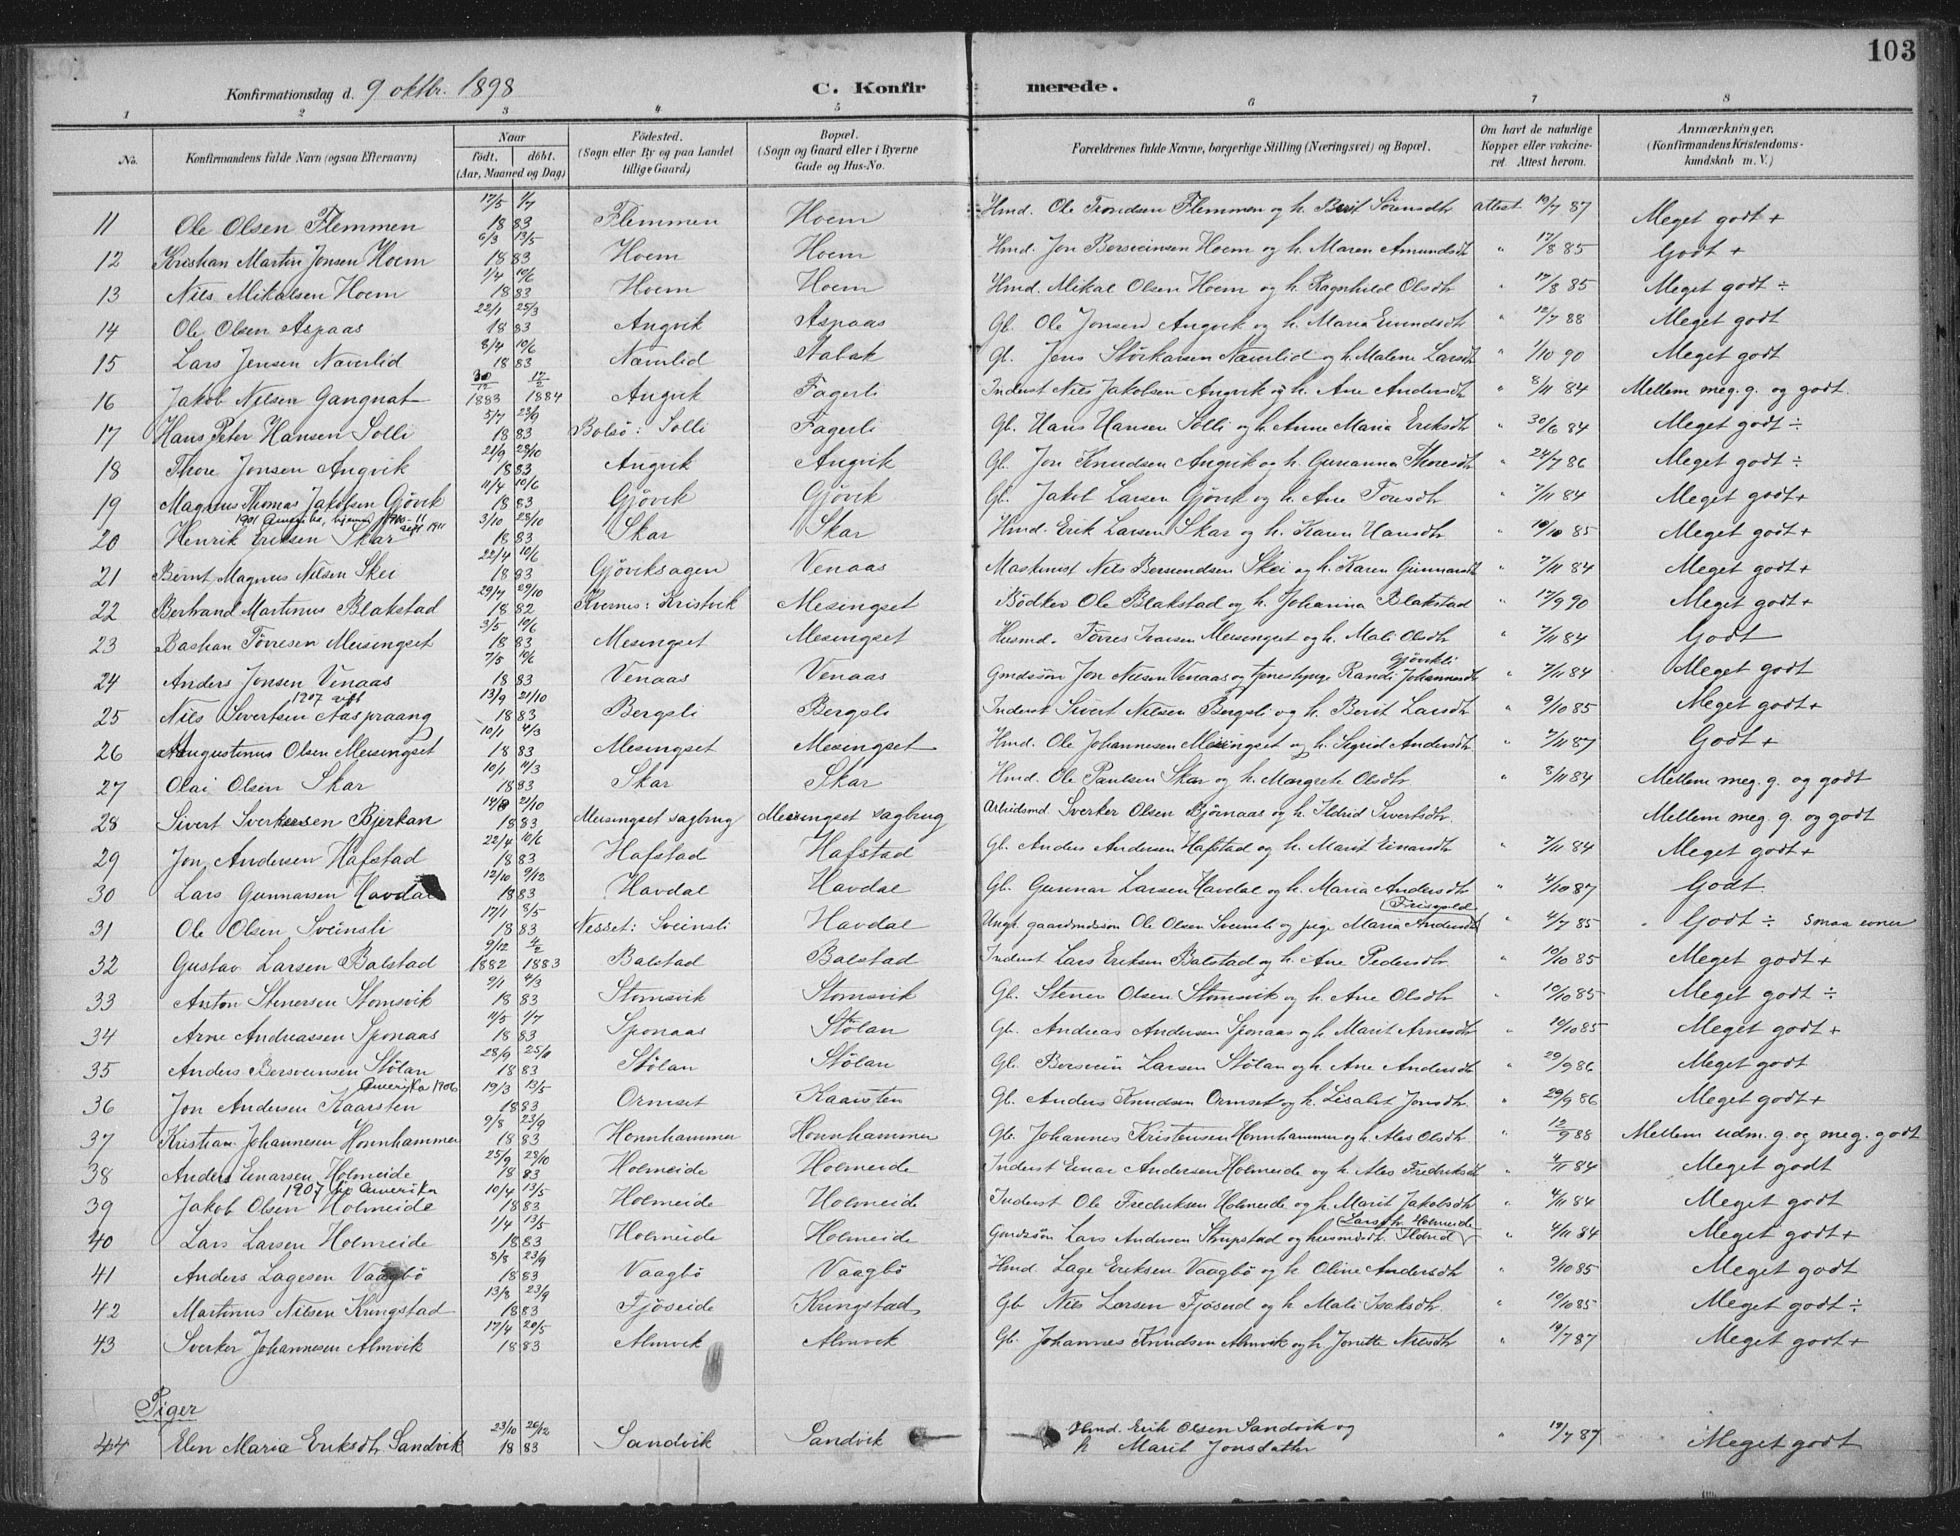 103
Konfirmationsdag d. 9 oktbr. 1898 C. Konfirmerede.
1 2 3 4 5 6 7 8
No. Konfirmandens fulde Navn (ogsaa Efternavn) Naar födt. döbt. (Aar, Maaned og Dag) Födested. (Sogn eller By og paa Landet tillige Gaard) Bopæl. (Sogn og Gaard eller i Byerne Gade og Hus-No. Forældrenes fulde Navne, borgerlige Stilling (Næringsvei) og Bopæl. Om havt de naturlige Kopper eller vakcineret. Attest herom. Anmærkninger, (Konfirmandens Kristendomskundskab m. V.)
11 Ole Olsen Flemmen 17/5 1/7 1883 Flemmen Hoem Hmd. Ole Trondsen Flemmen og h. Berit Sörensdtr attest 19/7 87 Meget godt +
12 Kristian Martin Jonsen Hoem 6/3 13/5 1883 Hoem Hoem Hmd. Jon Bersveinsen Hoem og h. Maren Amundsdtr " 17/8 85 Godt +
13 Nils Mikalsen Hoem 1/4 10/6 1883 Hoem Hoem Hmd. Mikal Olsen Hoem og h. Ragnhild Olsdtr " 17/8 85 Meget godt ÷
14 Ole Olsen Aspaas 22/1 25/3 1883 Angvik Aspaas Gb. Ole Jonsen Angvik og h. Maria Emundsdtr " 12/7 88 Meget godt
15 Lars Jensen Nævrlid 8/4 10/6 1883 Nævrlid Stabak Gb. Jens Störkersen Nævrlid og h. Malene Larsdtr " 1/10 90 Meget godt
16 Jakob Nilsen Gangnat 30/12 1883 17/2 1884 Angvik Fagerli Inderst Nils Jakobsen Angvik og h. Ane Andersdtr " 8/11 84 Mellem meg. g. og godt.
17 Hans Peter Hansen Solli 5/7 23/9 1883 Bolsö: Solli Fagerli Gb. Hans Hansen Solli og h. Anne Maria Eriksdtr " 30/6 84 Meget godt ÷
18 Thore Jonsen Angvik 21/9 28/10 1883 Angvik Angvik Gb. Jon Knudsen Angvik og h. Gurianna Thoresdtr " 24/7 86 Meget godt ÷
19 Magnus Thomas Jakobsen Gjövik 11/4 10/6 1883 Gjövik Gjövik Gb. Jakob Larsen Gjövik og h. Ane Tonsdtr " 7/11 84 Meget godt +
1901 Amerika, hjemme 1910-11 sept 1911
20 Henrik Eriksen Skar 3/10 28/10 1883 Skar Skar Hmd. Erik Larsen Skar og h. Karen Hansdtr " 10/10 85 Meget godt +
21 Bernt Magnus Nilsen Skei 22/4 10/6 1883 Gjöviksagen Venaas Maskinist Nils Bersvendsen Skei og h. Karen Gunnarsdtr " 7/11 84 Meget godt +
22 Bertrand Martinus Blakstad 29/7 29/10 1882 Kvernes: Kristvik Mesingset Bödker Ole Blakstad og h. Johanna Blakstad " 17/9 90 Meget godt +
23 Bastian Törresen Meisingset 3/5 10/6 1883 Mesingset Mesingset Husmd. Törres Ivarsen Meisingset og h. Mali Olsdtr " 7/11 84 Godt
24 Anders Jonsen Venaas 7/5 10/6 1883 Venaas Venaas Gmdssön Jon Nilsen Venaas og tjenestepige Randi Johannesdtr Gjövikli " 7/11 84 Meget godt
1907 gift
25 Nils Sivertsen Aaspraang 13/9 21/10 1883 Bergsli Bergsli Inderst Sivert Nilsen Bergsli og h. Berit Larsdtr " 9/10 85 Meget godt +
26 Augustinus Olsen Meisingset 10/1 4/3 1883 Mesingset Mesingset Hmd. Ole Johannesen Mesingset og h. Sigrid Andersdtr " 7/11 87 Godt +
27 Olai Olsen Skar 10/1 11/3 1883 Skar Skar Hmd. Ole Paulsen Skar og h. Margrete Olsdtr " 8/11 84 Mellem meg. g. og godt
28 Sivert Sverkersen Bjerkan 21/10 1883 Meisingset sagbrug Meisingset sagbrug Arbeidsmd. Sverker Olsen Björnaas og h. Ildrid Sivertsdtr. Mellem meg. g. og godt
29 Jon Andersen Hafstad 22/4 10/6 1883 Hafstad Hafstad Gb. Anders Andersen Hafstad og h. Marit Einarsdtr " 7/11 84 Meget godt +
30 Lars Gunnarsen Havdal 12/10 9/12 1883 Havdal Havdal Gb. Gunnar Larsen Havdal og h. Maria Andersdtr " 4/10 87 Godt.
31 Ole Olsen Sveinsli 17/1 8/5 1883 Nesset: Sveinsli Havdal Ungk. gaardmdssön Ole Olsen Sveinsli og pige Maria Andersdtr Frisvold " 4/7 85 Godt ÷ smaa evner
32 Gustav Larsen Balstad 9/12 1882 4/2 1883 Balstad Balstad Inderst Lars Eriksen Balstad og h. Ane Pedersdtr " 10/10 85 Meget godt +
33 Anton Stenersen Stomsvik 9/1 4/3 1883 Stomsvik Stomsvik Gb. Stener Olsen Stomsvik og h. Ane Olsdtr " 10/10 85 Meget godt ÷
34 Arne Andreassen Sponaas 11/5 1/7 1883 Sponaas Stölan Gb. Andreas Andersen Sponaas og h. Marit Arnesdtr " 10/10 85 Meget godt +
35 Anders Bersveinsen Stölan 28/9 1883 Stölan Stölan Gb. Bersvein Larsen Stölan og h. Ane Andersdtr " 29/9 86 Meget godt
Amerika 1906
36 Jon Andersen Kaarsten 19/3 13/5 1883 Ormset Kaarsten Gb. Anders Knudsen Ormset og h. Lisabet Jonsdtr. " 29/9 86 Meget godt +
37 Kristian Johannesen Honnhammer 9/8 23/9 1883 Honnhammer Honnhammer Gb. Johannes Kristensen Honnhammer og h. Ales Olsdtr. " 12/9 88 Mellem udm. g. og meg. godt
38 Anders Einarsen Holmeide 25/9 28/10 1883 Holmeide Holmeide Inderst Einar Andersen Holmeide og h. Ales Fredriksdtr " 4/11 84 Meget godt
1907 til Amerika
39 Jakob Olsen Holmeide 10/4 13/5 1883 Holmeide Holmeide Inderst Ole Fredriksen Holmeide og h. Marit Jakobsdtr " 4/11 84 Meget godt
40 Lars Larsen Holmeide 1/4 13/5 1883 Holmeide Holmeide Gmdssön Lars Andersen Strupstad og husmdsdtr. Ildrid Larsdtr. Holmeide " 4/11 84 Meget godt +
41 Anders Lagesen Vaagbö 8/8 23/9 1883 Vaagbö Vaagbö Hmd. Lage Eriksen Vaagbö og h. Oline Andersdtr " 9/10 85 Meget godt
42 Martinus Nilsen Kringstad 13/8 23/9 1883 Fjöseide Kringstad Gb Nils Larsen Fjöseid og h. Mali Isaksdtr. " 10/10 85 Meget godt ÷
43 Sverker Johannesen Almvik 17/4 20/5 1883 Almvik Almvik Gb. Johannes Knudsen Almvik og h Jonette Nilsdtr " 19/7 87 Meget godt +
Piger
44 Elen Maria Eriksdtr Sandvik 23/10 26/12 1883 Sandvik Sandvik Hmd. Erik Olsen Sandvik og h Marit Jonsdatter " 19/7 87 Meget godt